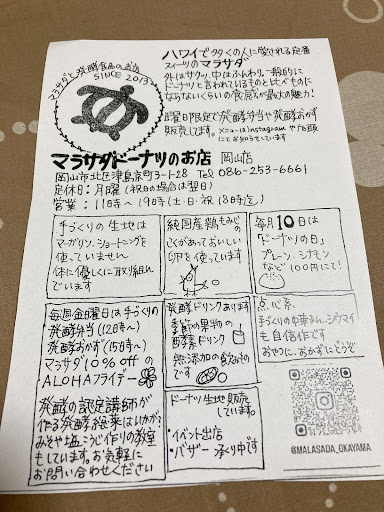 マラサダと発酵食品のお店
SINCE 2013
ハワイで多くの人に愛される定番
スイーツのマラサダ
外はサクッ、中はふんわり。一般的に
ドーナツと言われているものと比べものに
ならないくらいの食感が最大の魅力!
曜日限定で発酵弁当や発酵おかず
販売してます。メニューはinstagramや店頭
にてお知らせしています
マラサダドーナツのお店 岡山店
岡山市北区津島京町3-1-28 Tel 086-253-6661
定休日:月曜(祝日の場合は翌日)
営業:11時〜19時(土・日・祝18時迄)
手づくりの生地は
マーガリン、ショートニングを
使っていません
体に優しくに取り組ん
でいます
純国産鶏もみじの
こくがあっておいしい
卵を使っています
毎月10日は
「ドーナツの日」
プレーン、シナモン
など100円にて!
毎週金曜日は手づくりの
発酵弁当(12時〜)
発酵おかず(15時〜)
マラサダ10%offの
ALOHAフライデー
発酵ドリンクあります
季節の果物の
酵素ドリンク
無添加の甘酒など
です
点心系
手づくりの中華まん、シウマイ
も自信作です
おやつに、おかずにどうぞ
発酵の認定講師が
作る発酵お惣菜はいかが?
みそや塩こうじ作りの教室
もしています。お気軽に
お問い合わせください
ドーナツ生地販売
しています。
・イベント出店
・バザー 承り中です
@MALASADA_OKAYAMA